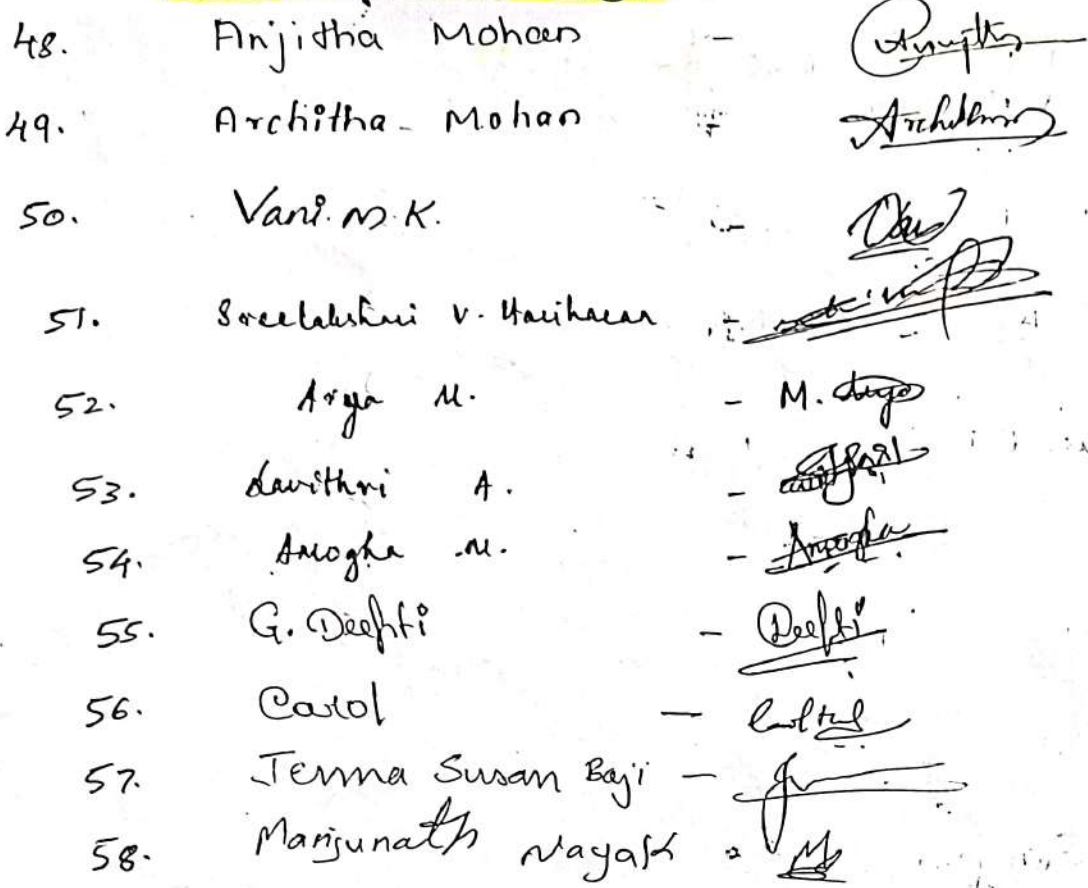 48. Anjitha Mohan -
49. Architha - Mohan - Archithm
50. Vani. M. K. -
51. Sreelakshmi V. Hariharan -
52. Arya M. - M. Arya
53. Savithri A. -
54. Amogha M. - Amogha
55. G. Deepti - Deepti
56. Carol -
57. Jemma Susan Baji -
58. Manjunath Nayak -